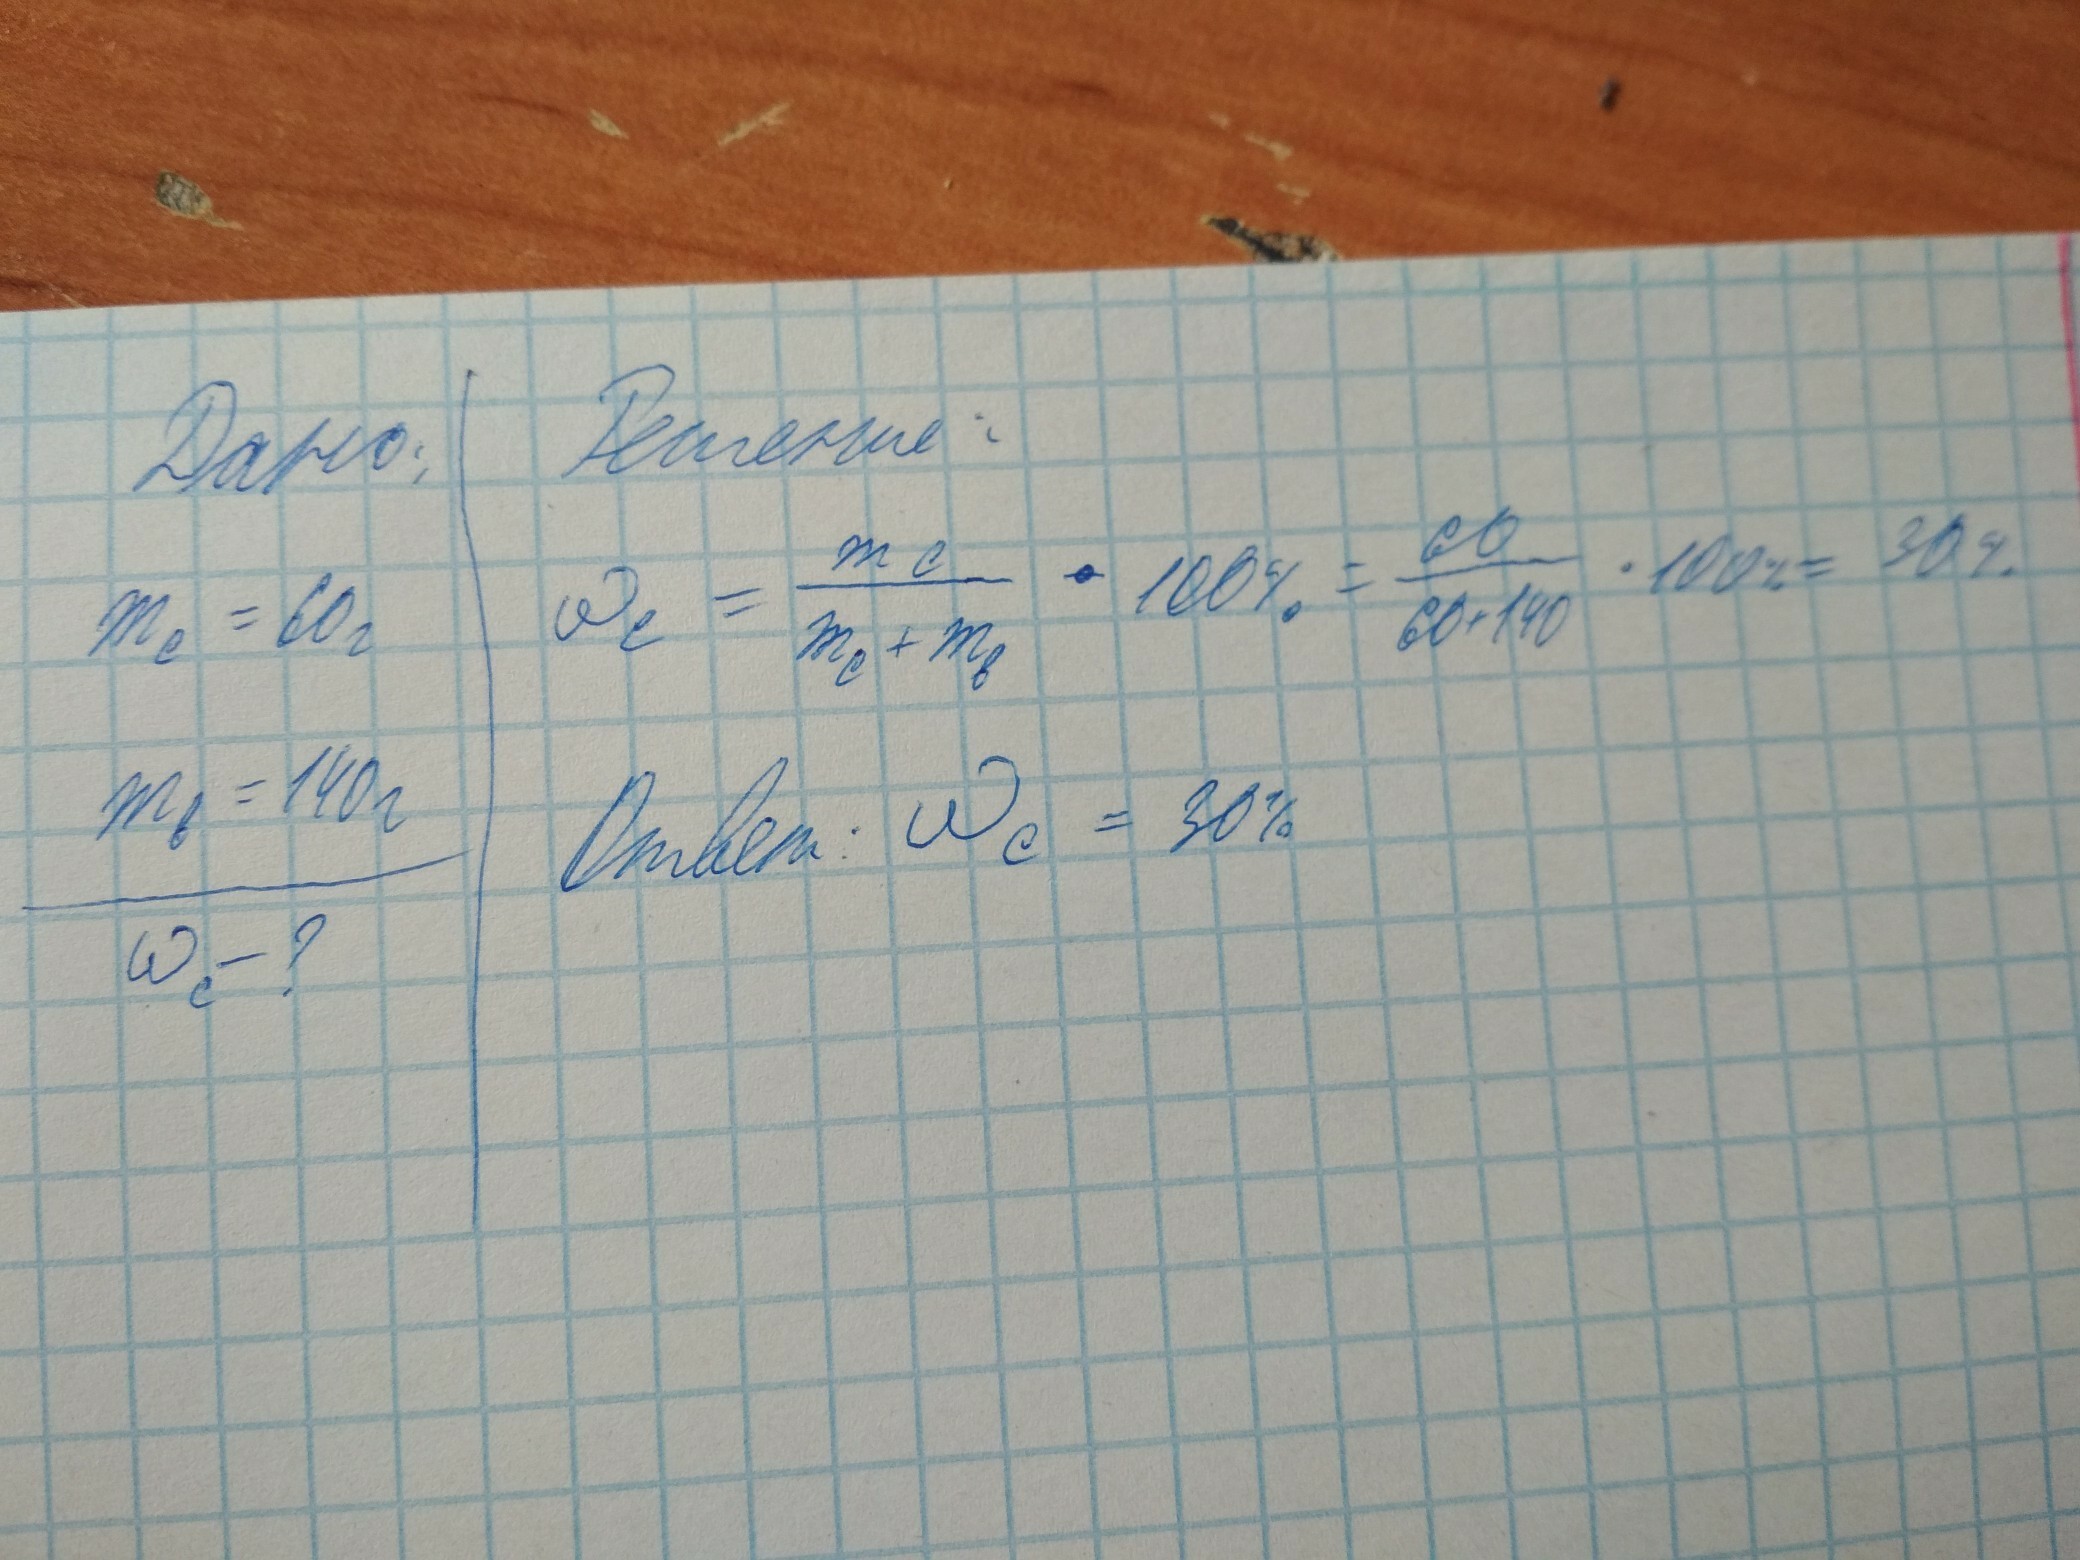 Дано:
m_c = 60г
m_в = 140г
ω_c - ?
Решение:
ω_c = m_c / (m_c + m_в) · 100% = 60 / (60+140) · 100% = 30%
Ответ: ω_c = 30%